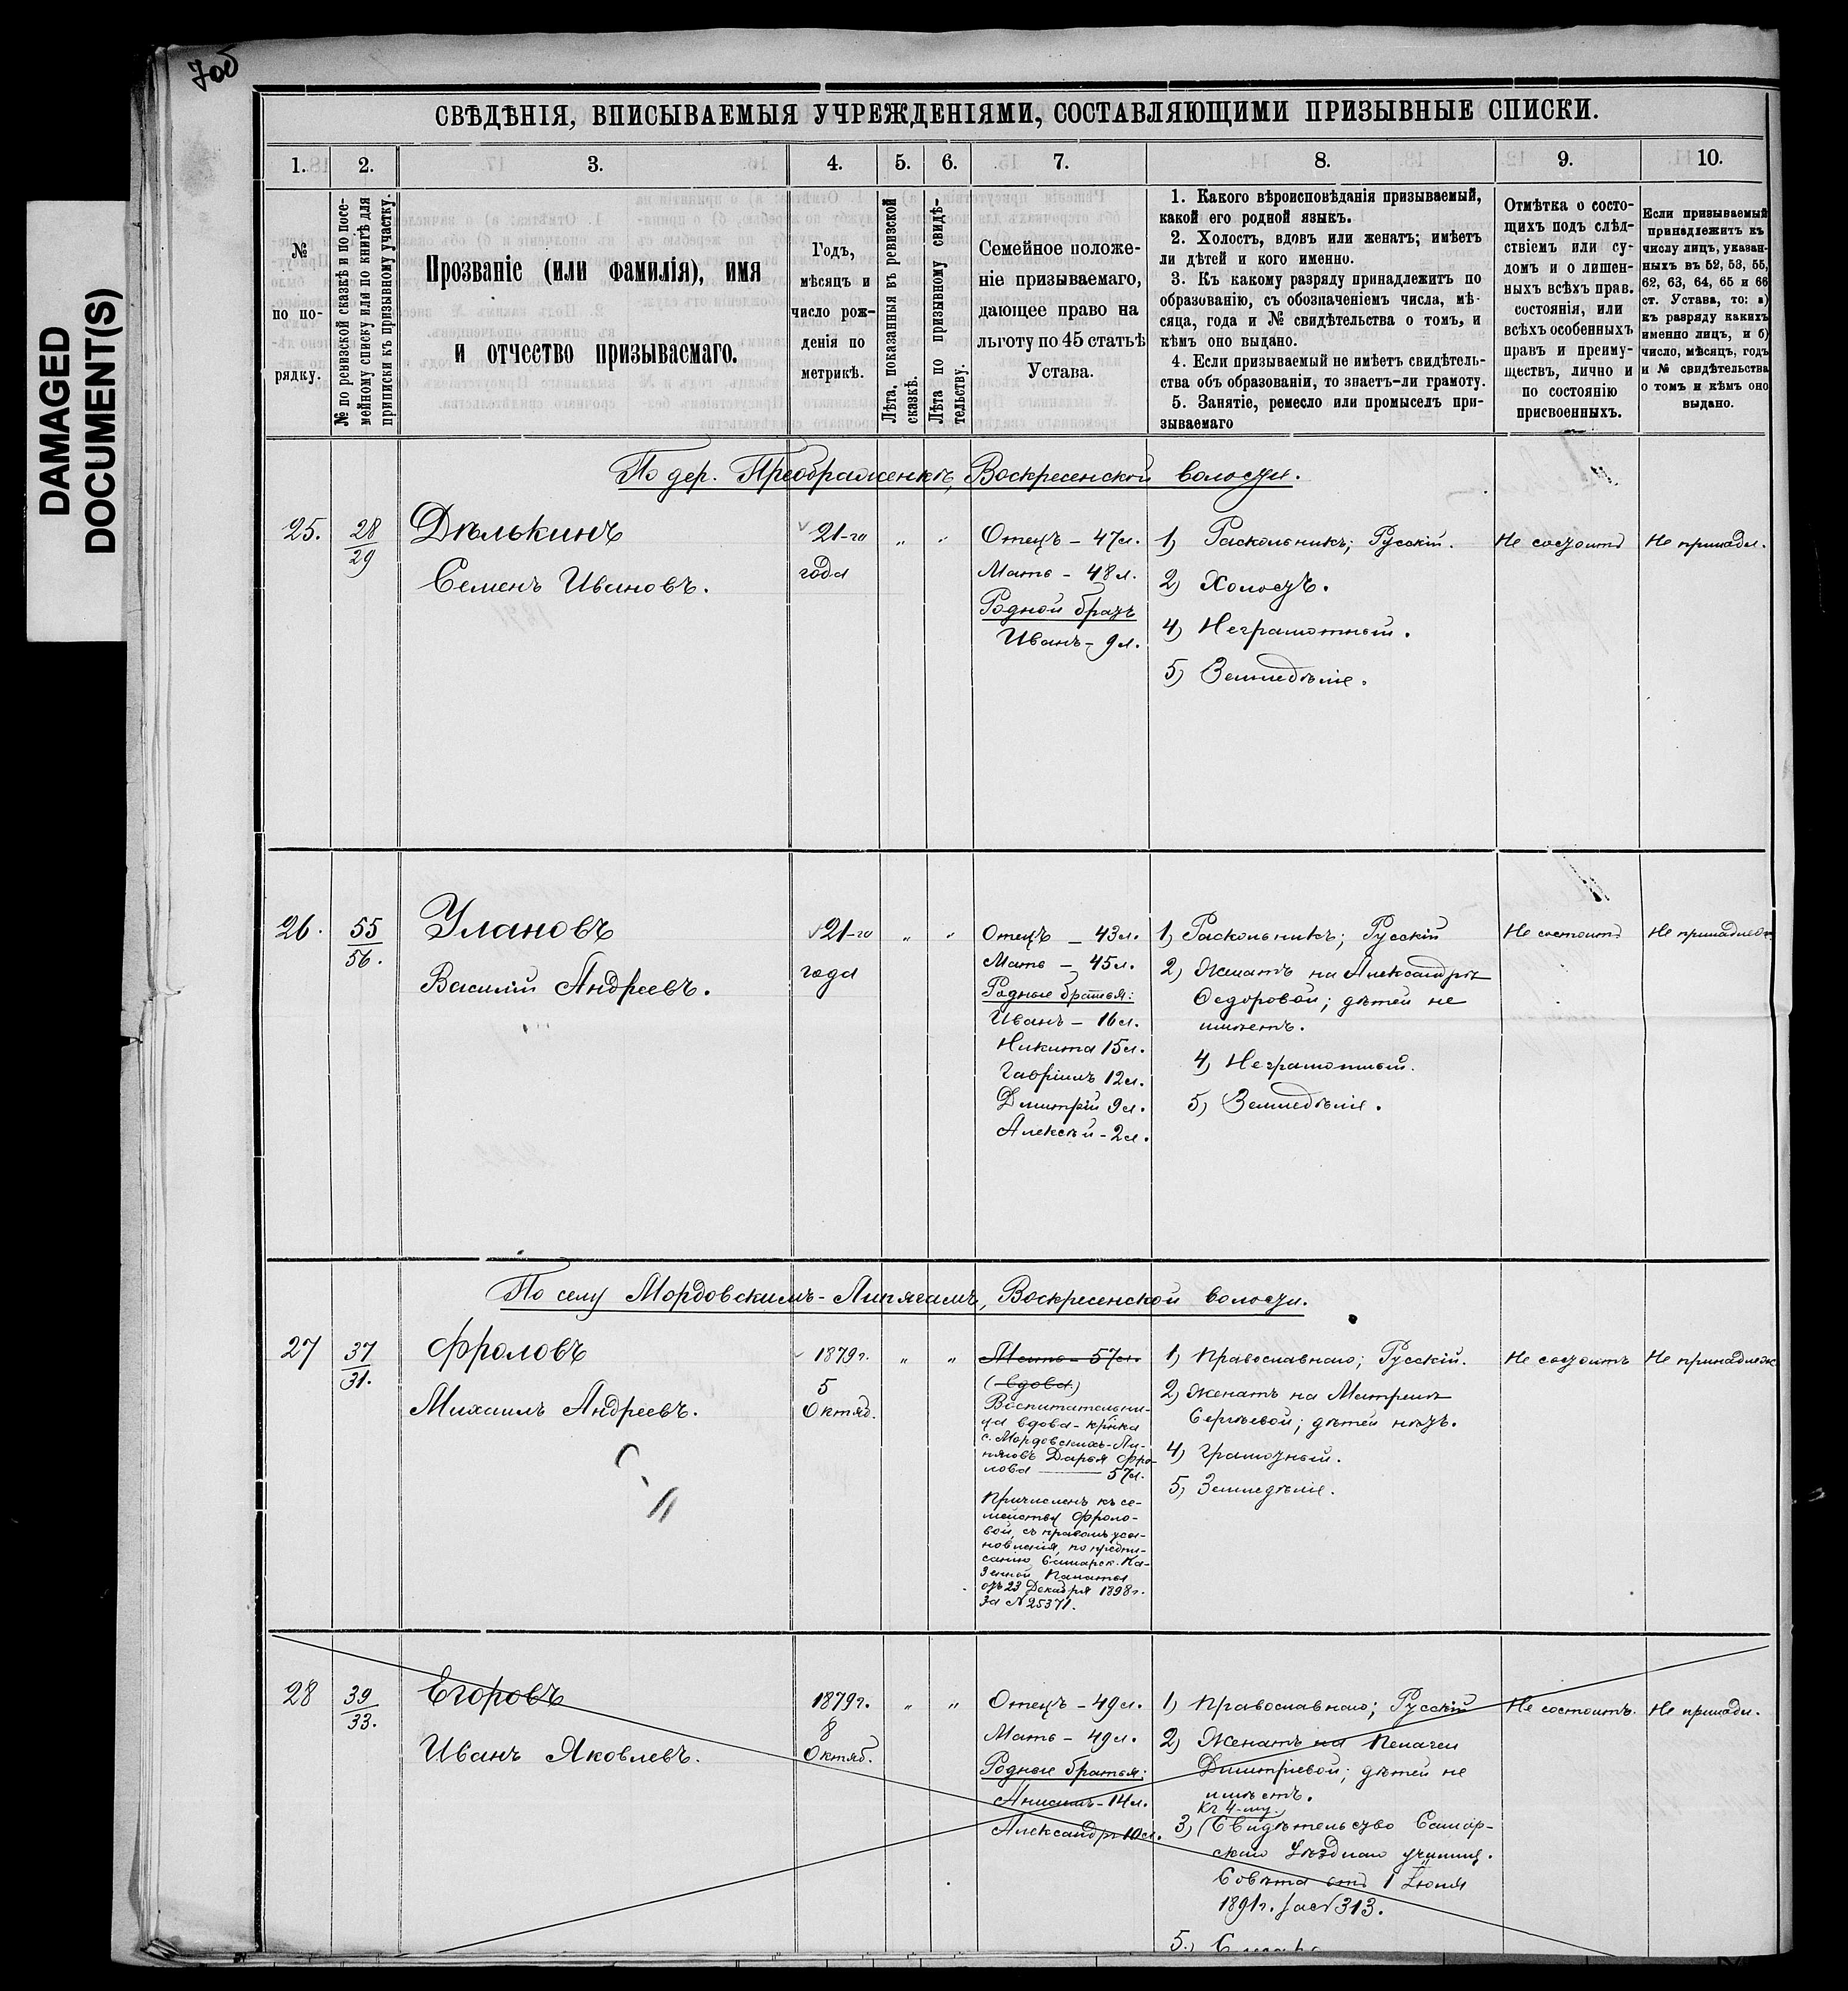 70об
DAMAGED
DOCUMENT(S)
СВѢДѢНІЯ, ВПИСЫВАЕМЫЯ УЧРЕЖДЕНІЯМИ, СОСТАВЛЯЮЩИМИ ПРИЗЫВНЫЕ СПИСКИ.
1. 2. 3. 4. 5. 6. 7. 8. 9. 10.
№
по по-
рядку.
№ по ревизской сказкѣ и по посе-
мейному списку или по книгѣ для
приписки къ призывному участку.
Прозваніе (или фамилія), имя
и отчество призываемаго.
Годъ,
мѣсяцъ и
число рож-
денія по
метрикѣ.
Лѣта, показанныя въ ревизской
сказкѣ.
Лѣта по призывному свидѣ-
тельству.
Семейное положе-
ніе призываемаго,
дающее право на
льготу по 45 статьѣ
Устава.
1. Какого вѣроисповѣданія призываемый,
какой его родной языкъ.
2. Холостъ, вдовъ или женатъ; имѣетъ
ли дѣтей и кого именно.
3. Къ какому разряду принадлежитъ по
образованію, съ обозначеніемъ числа, мѣ-
сяца, года и № свидѣтельства о томъ, и
кѣмъ оно выдано.
4. Если призываемый не имѣетъ свидѣтель-
ства объ образованіи, то знаетъ-ли грамоту.
5. Занятіе, ремесло или промыселъ при-
зываемаго
Отмѣтка о состо-
щихъ подъ слѣд-
ствіемъ или су-
домъ и о лишен-
ныхъ всѣхъ прав.
состоянія, или
всѣхъ особенныхъ
правъ и преиму-
ществъ, лично и
по состоянію
присвоенныхъ.
Если призываемый
принадлежитъ къ
числу лицъ, указан-
ныхъ въ 52, 53, 55,
62, 63, 64, 65 и 66
ст. Устава, то: а)
къ разряду какихъ
именно лицъ, и б)
число, мѣсяцъ, годъ
и № свидѣтельства
о томъ и кѣмъ оно
выдано.
По дер. Преображенкѣ, Воскресенской волости.
25.
28
29
Дѣлькинъ
Семенъ Ивановъ.
21-го
года
" "
Отецъ – 47л.
Мать – 48л.
Родной братъ
Иванъ – 9л.
1) Раскольникъ; Русскій.
2) Холостъ.
4) Неграмотный.
5) Земледѣліе.
Не состоитъ
Не принадл.
26.
55
56.
Улановъ
Василій Андреевъ.
21-го
года
" "
Отецъ – 43л.
Мать – 45л.
Родные братья:
Иванъ – 16л.
Никита 15л.
Гавріилъ 12л.
Дмитрій 9л.
Алексѣй – 2л.
1) Раскольникъ; Русскій
2) Женатъ на Александрѣ
Ѳедоровой; дѣтей не
имѣетъ.
4) Неграмотный.
5) Земледѣліе.
Не состоитъ
Не принадлеж.
По селу Мордовскимъ-Липягамъ, Воскресенской волости.
27
37
31.
Фроловъ
Михаилъ Андреевъ.
1879г.
5
Октяб.
" "
Мать – 57л.
(вдова)
Воспитательни-
ца вдова – кр-нка
с. Мордовскихъ-Ли-
пяговъ Дарья Фро-
лова — 57л.
Причисленъ къ се-
мейству Фроло-
вой, съ правомъ усы-
новленія, по предпи-
санію Самарск. Ка-
зенной Палаты
отъ 23 Декабря 1898г.
за №25371.
1) Православнаго; Русскій.
2) Женатъ на Матренѣ
Сергѣевой; дѣтей нѣтъ.
4) Грамотный.
5) Земледѣліе.
Не состоитъ
Не принадлеж
28
39
33.
Егоровъ
Иванъ Яковлевъ.
1879г.
8
Октяб.
" "
Отецъ – 49л.
Мать – 49л.
Родные братья:
Анисимъ – 14л.
Александръ 10л.
1) Православнаго; Русскій
2) Женатъ на Пелагеи
Дмитріевой; дѣтей не
имѣетъ.
Къ 4-му.
3) Свидѣтельство Самар-
скаго Уѣзднаго училищ.
Совѣта отъ 1 Іюня
1891г. за №313.
5.
Не состоитъ.
Не принадл.